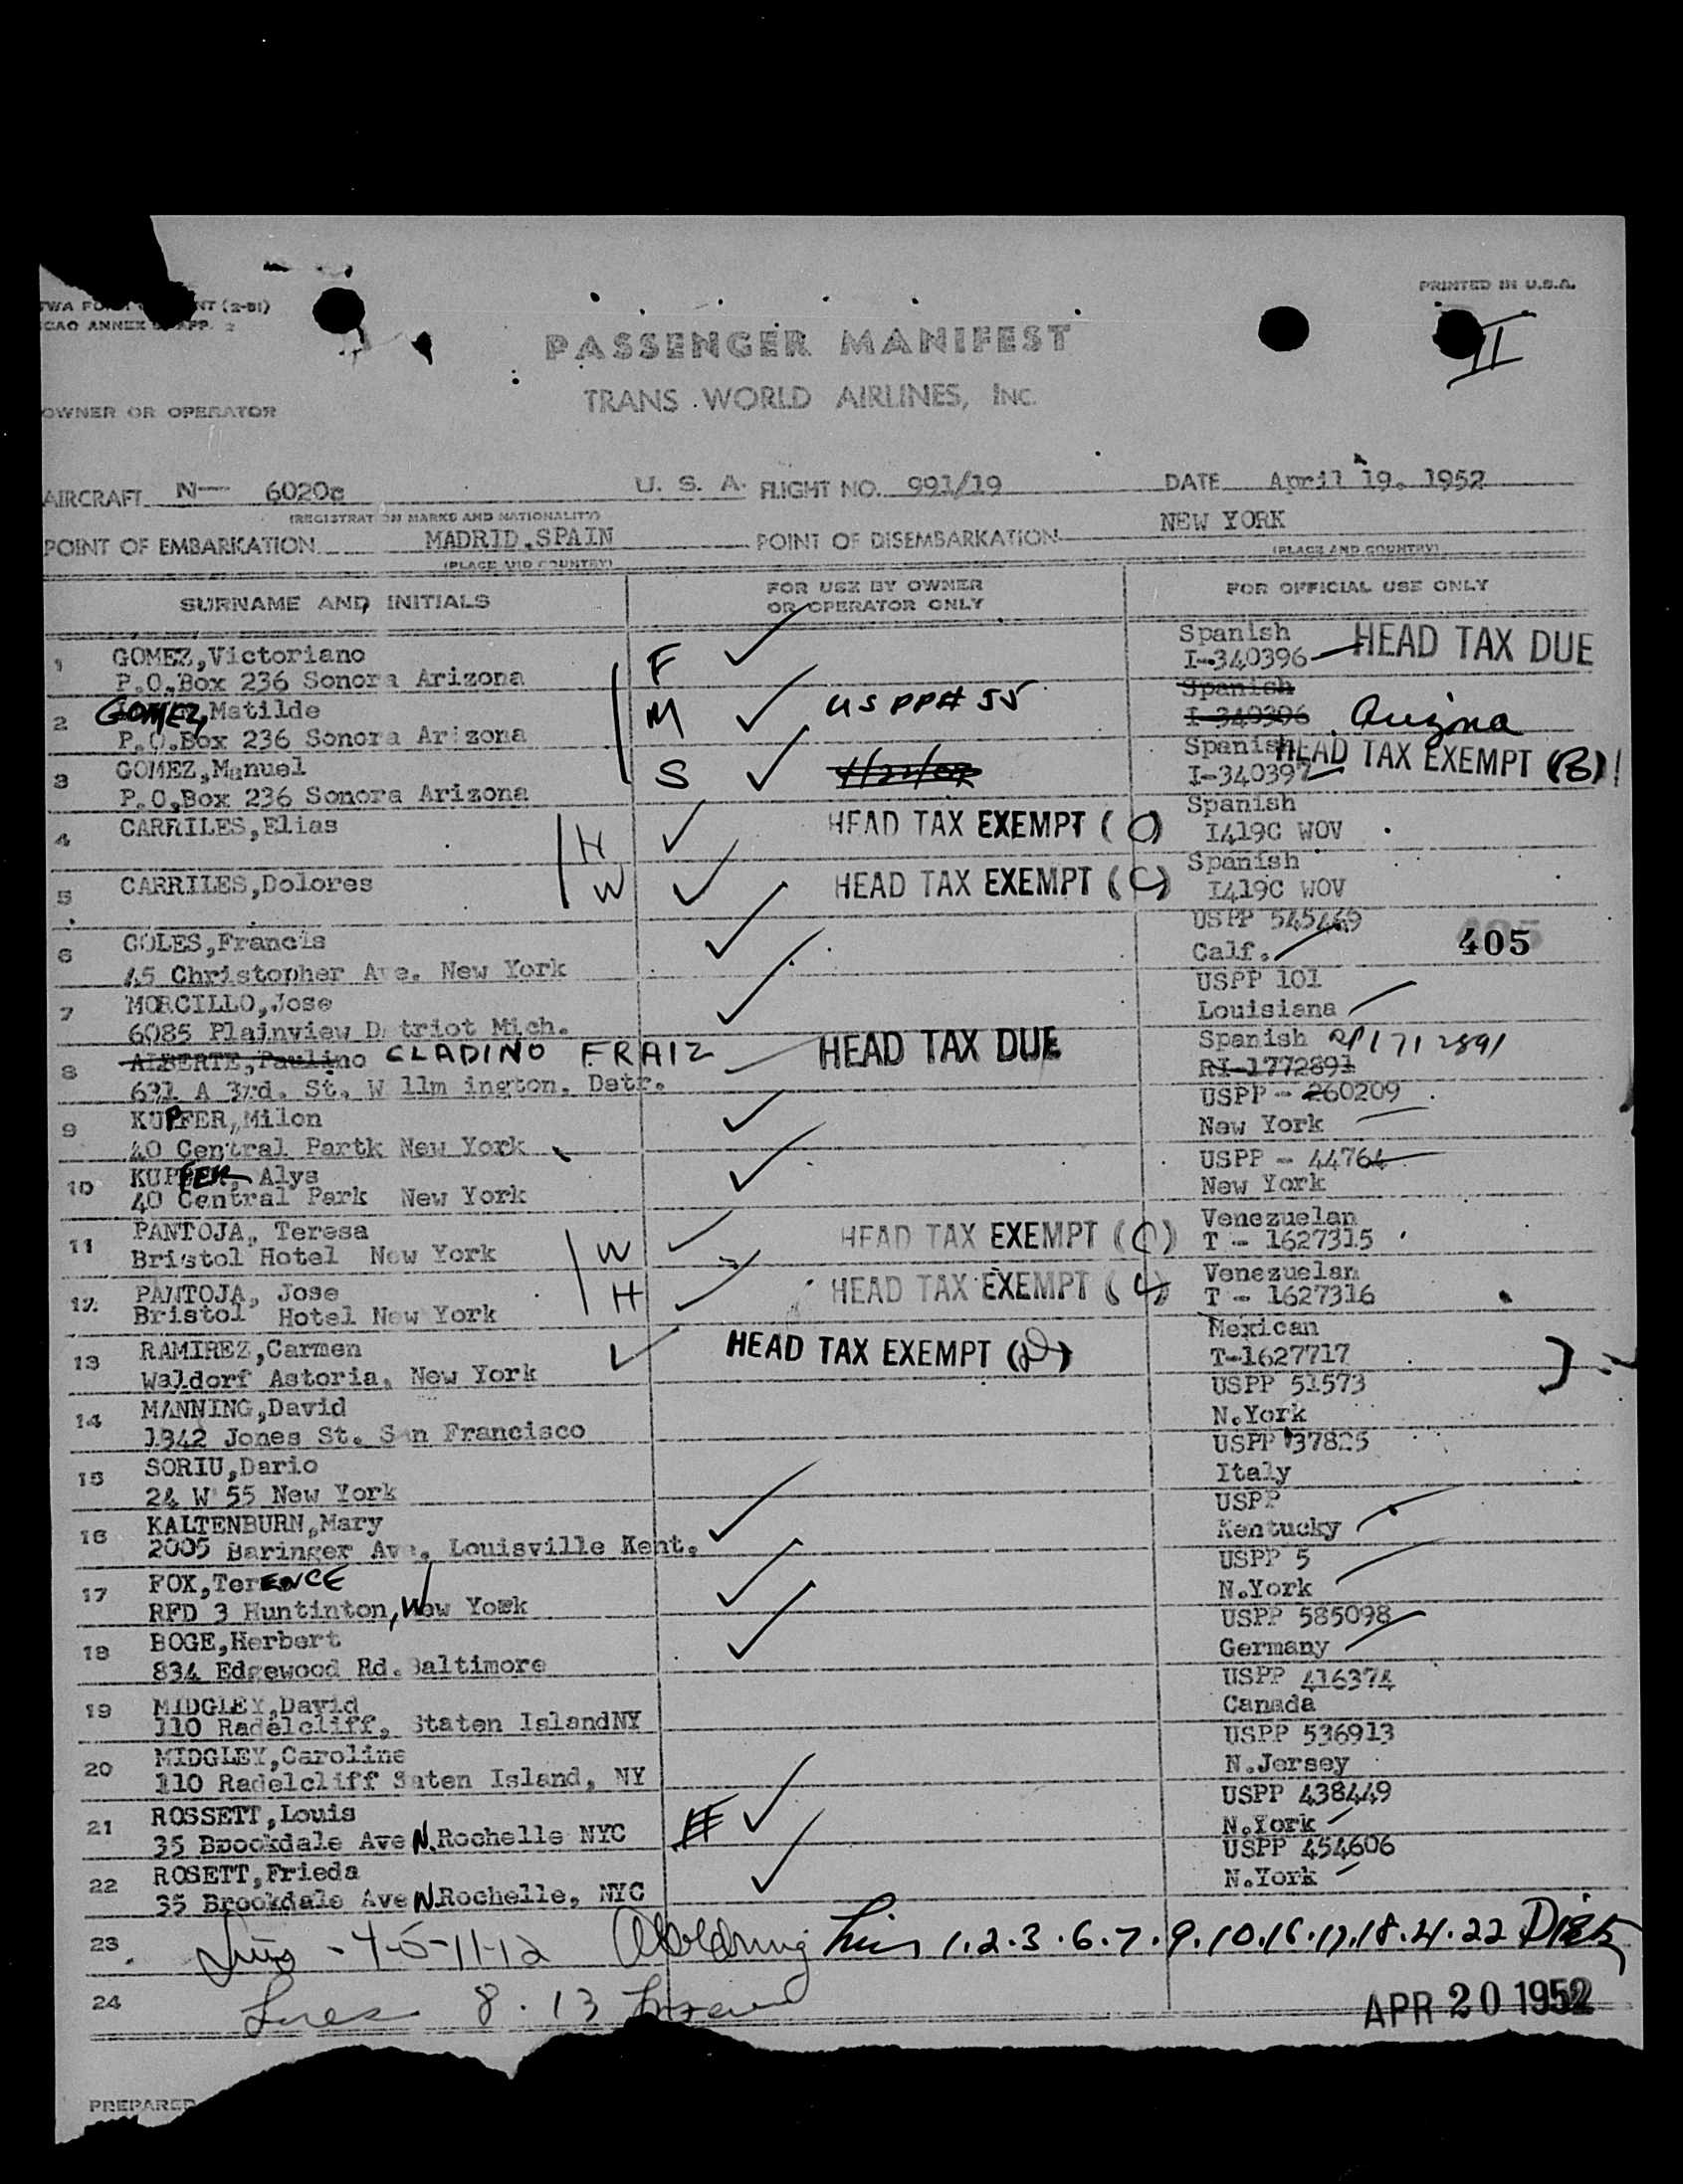 PRINTED IN U.S.A.
TWA FO NT (2-51)
ICAO ANNEX APP. 2
II
PASSENGER MANIFEST
TRANS WORLD AIRLINES, INC.
OWNER OR OPERATOR
AIRCRAFT N— 6020c U. S. A. FLIGHT NO. 991/19 DATE April 19. 1952
(REGISTRATION MARKS AND NATIONALITY)
POINT OF EMBARKATION MADRID,SPAIN POINT OF DISEMBARKATION NEW YORK
(PLACE AND COUNTRY) (PLACE AND COUNTRY)
SURNAME AND INITIALS FOR USE BY OWNER OR OPERATOR ONLY FOR OFFICIAL USE ONLY
1 GOMEZ,Victoriano F Spanish HEAD TAX DUE
P.O.Box 236 Sonora Arizona I-340396
2 GOMEZ,Matilde M US PP# 55 Spanish
P.O.Box 236 Sonora Arizona I-340396 Arizona
3 GOMEZ,Manuel S Spanish HEAD TAX EXEMPT (B)
P.O,Box 236 Sonora Arizona I-340397
4 CARRILES,Elias H HEAD TAX EXEMPT (C) Spanish
I419C WOV
5 CARRILES,Dolores W HEAD TAX EXEMPT (C) Spanish
I419C WOV
6 COLES,Francis USPP 545469
45 Christopher Ave. New York Calf. 405
7 MORCILLO,Jose USPP 101
6085 Plainview D triot Mich. Louisiana
8 ALBERTE,Paulino CLADINO FRAIZ HEAD TAX DUE Spanish RP1712891
631 A 3rd. St. W llm ington. Detr. RI-1772891
9 KUPFER,Milon USPP - 260209
40 Central Partk New York New York
10 KUPFER, Alys USPP - 44764
40 Central Park New York New York
11 PANTOJA, Teresa W HEAD TAX EXEMPT (C) Venezuelan
Bristol Hotel New York T - 1627315
12 PANTOJA, Jose H HEAD TAX EXEMPT (C) Venezuelan
Bristol Hotel New York T - 1627316
13 RAMIREZ,Carmen HEAD TAX EXEMPT (D) Mexican
Waldorf Astoria, New York T-1627717
14 MANNING,David USPP 51573
1342 Jones St. San Francisco N.York
15 SORIU,Dario USPP 37825
24 W 55 New York Italy
16 KALTENBURN,Mary USPP
2005 Baringer Ave. Louisville Kent. Kentucky
17 FOX,TerENCE USPP 5
RFD 3 Huntinton, New York N.York
18 BOGE,Herbert USPP 585098
834 Edgewood Rd. Baltimore Germany
19 MIDGLEY,David USPP 416374
110 Radelcliff, Staten IslandNY Canada
20 MIDGLEY,Caroline USPP 536913
110 Radelcliff Saten Island, NY N.Jersey
21 ROSSETT,Louis USPP 438449
35 Brookdale Ave N.Rochelle NYC N.York
22 ROSETT,Frieda USPP 454606
35 Brookdale Ave N.Rochelle, NYC N.York
23 -4-5-11-12 1.2.3.6.7.9.10.16.17.18.21.22
24 Lines 8.13 APR 20 1952
PREPARED